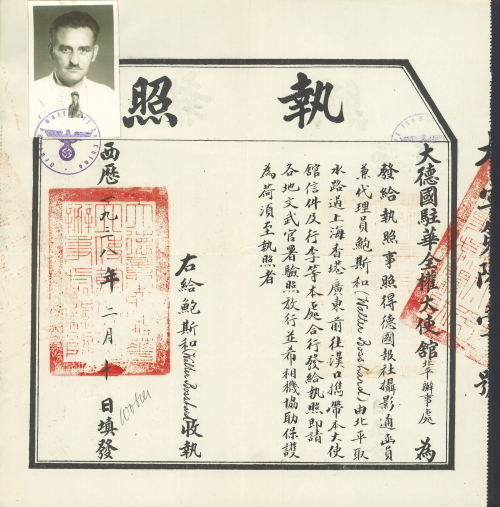 執照
大德國駐華全權大使館北平辦事處 為
發給執照事照得德國報社攝影通函員
兼代理員鮑斯和(Walter Bosshard)由北平取
水路過上海香港廣東前往漢口携帶本大使
館信件及行李等本處合行發給執照即請
各地文武官署驗照放行並希相機協助保護
為荷須至執照者
右給鮑斯和(Walter Bosshard)收執
西歷一九三八年二月十日填發
號